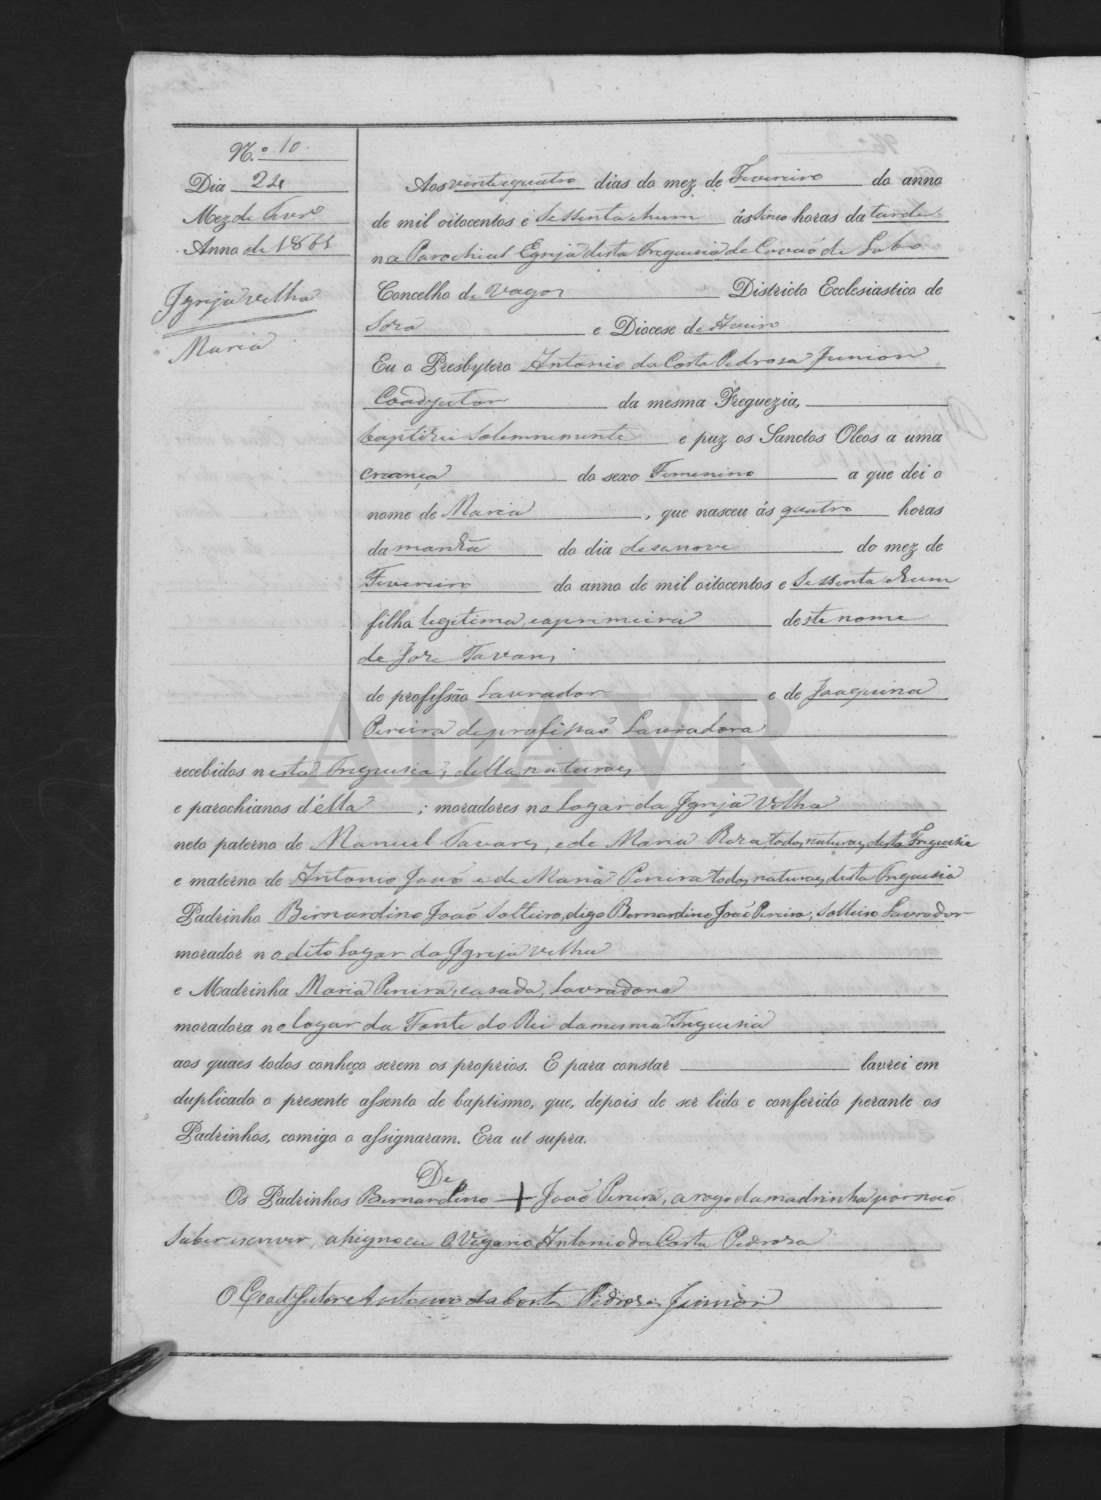 N.º 10
Dia 24
Mez de Fevr.º
Anno de 1861
Igreja velha
Maria
Aos vinte e quatro dias do mez de Fevereiro do anno
de mil oitocentos e sessenta hum ás sinco horas da tarde
na Parochial Egreja desta Freguesia de Covaõ de Lobo
Concelho de Vagos Districto Ecclesiastico de
Soza e Diocese de Aveiro
Eu o Presbytero Antonio da Costa Pedrosa Junior
Coadjutor da mesma Freguezia,
baptizei solemnemente e puz os Sanctos Oleos a uma
criança do sexo Femenino a que dei o
nome de Maria, que nasceu ás quatro horas
da manhã do dia desanove do mez de
Fevereiro do anno de mil oitocentos e sessenta e hum
filha legitima, e a primeira deste nome
de Joze Tavares
de profissão Lavrador e de Joaquina
Pereira de profissaõ Lavradora
ADAVR
recebidos nesta Freguesia, della naturaes
e parochianos d'ella; moradores no Lugar da Igreja Velha
neto paterno de Manuel Tavares, e de Maria Roza todos naturaes desta Freguesia
e materno de Antonio Joaõ e de Maria Pereira todos naturaes desta Freguesia
Padrinho Bernardino Joaõ Solteiro, digo Bernardino Joaõ Pereira, Solteiro Lavrador
morador no dito Lugar da Igreja velha
e Madrinha Maria Pereira, casada, Lavradora
moradora no lugar da Fonte do Rei da mesma Freguesia
aos quaes todos conheço serem os proprios. E para constar lavrei em
duplicado o presente assento de baptismo, que, depois de ser lido e conferido perante os
Padrinhos, comigo o assignaram. Era ut supra.
De
Os Padrinhos Bernardino + Joaõ Pereira, a rogo da madrinha por naõ
saber escrever, assigno eu O Vigario Antonio da Costa Pedrosa
O Coadjutor Antonio da Costa Pedrosa Junior